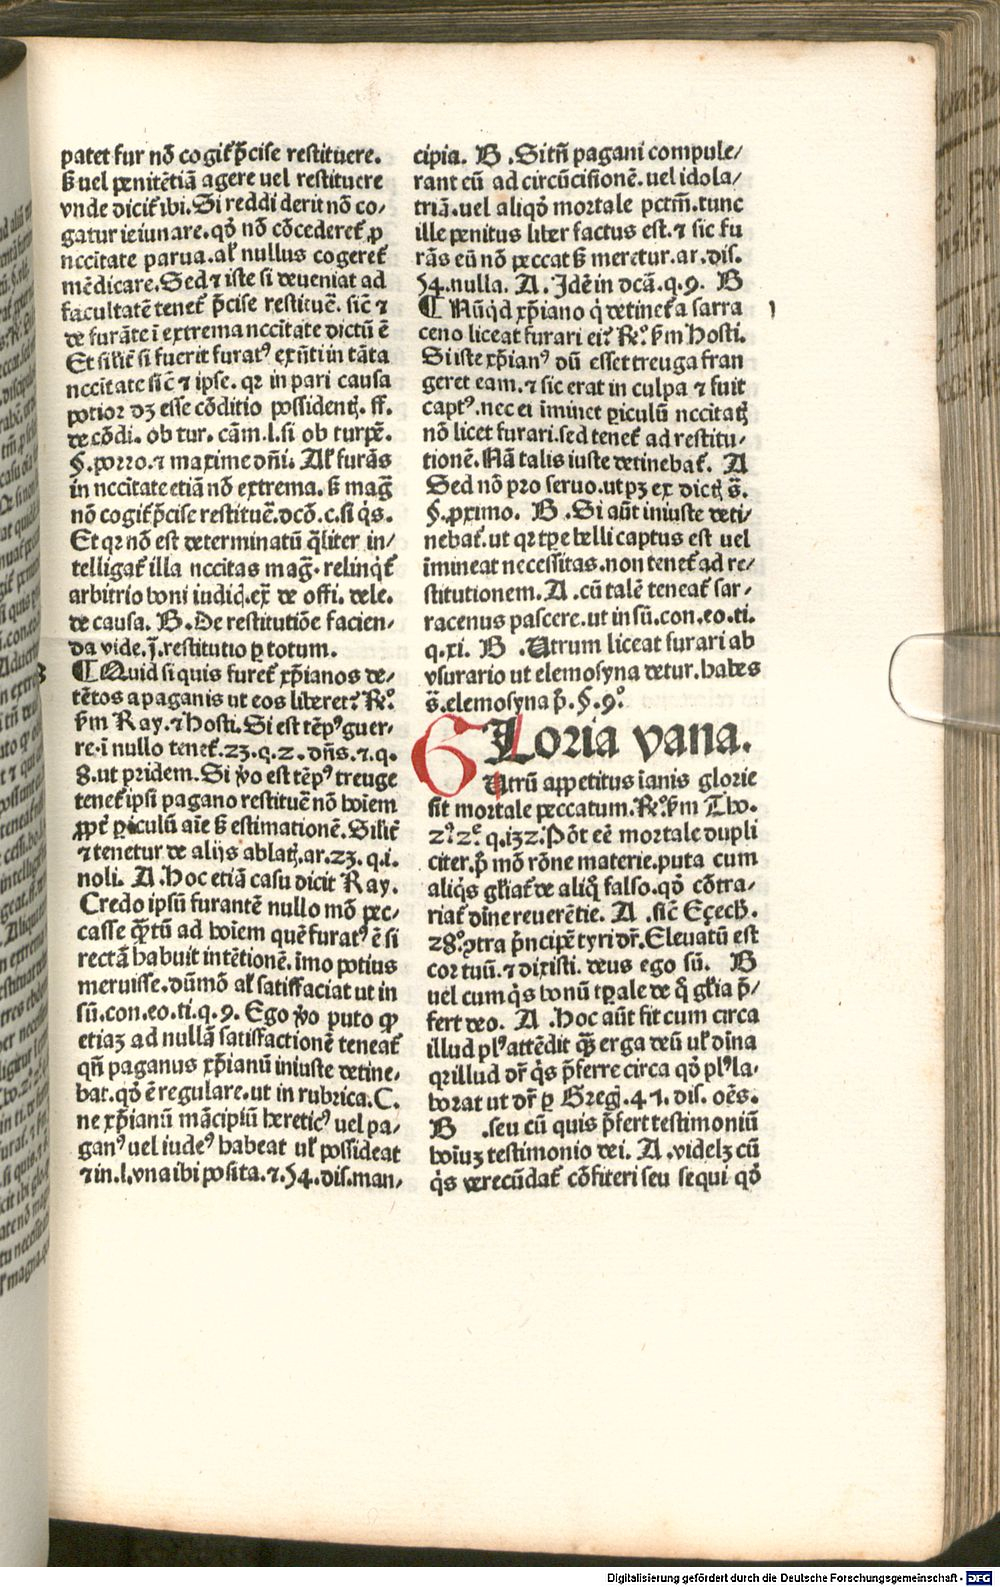 patet fur nō cogit͛ p̄cise restituere.
ß uel penitētiā agere uel restituere
vnde dicit͛ ibi. Si reddiderit nō co-
gatur ieiunare. qd̄ nō cōcederet͛ ꝓ
nccitate parua. al͛ nullus cogeret͛
mēdicare. Sed ⁊ iste si deueniat ad
facultatē tenet͛ p̄cise restituē. sic̄ ⁊
de furāte ī extrema nccitate dictū ē
Et silit͛ si fuerit furatꝰ exn̄ti in tāta
nccitate sic̄ ⁊ ipse. qr in pari causa
potior dꝫ esse cōditio possidentꝭ. ff.
de cōdi. ob tur. cām. l. si ob turpē.
§. porro. ⁊ maxime dn̄i. Al͛ furās
in nccitate etiā nō extrema. ß maḡ
nō cogit͛ p̄cise restituē. dcō. c. si q̇s.
Et qr nō est determinatū q̄liter in/
telligat͛ illa nccitas maḡ. relinq̇t͛
arbitrio boni iudiq. ex̄ de offi. dele.
de causa. B. De restitutiōe facien-
da vide. j̄. restitutio ꝑ totum.
¶ Quid si quis furet͛ xp̄ianos de-
tētos a paganis ut eos liberet? R̄º.
ẜm Ray. ⁊ Hosti. Si est tēpꝰ guer-
re. ī nullo tenet͛. 23. q. 2. dn̄s. ⁊. q.
8. ut pridem. Si v̊o est tēpꝰ treuge
tenet͛ ipsi pagano restituē nō hoīem
ꝓpt͛ ꝑiculū aīe ß estimationē. Silit͛
⁊ tenetur de alijs ablatꝭ. ar. 23. q. i.
noli. A. Hoc etiā casu dicit Ray.
Credo ipsū furantē nullo mō pec-
casse q̄tū ad hoīem quē furatꝰ ē si
rectā habuit intētionē. īmo potius
meruisse. dūmō al͛ satisfaciat ut in
sū. con. eo. ti. q. 9. Ego v̊o puto ꝙ
etiaꝫ ad nullā satisfactionē teneat͛
qn̄ paganus xp̄ianū iniuste detine-
bat. qd̄ ē regulare. ut in rubrica. C.
ne xp̄ianū mācipiū hereticꝰ uel pa-
ganꝰ uel iudeꝰ habeat ul͛ possideat
⁊ in. l. vna ibi posita. ⁊. 54. dis. man-
cipia. B. Si tn̄ pagani compule/
rant eū ad circūcisionē. uel idola/
triā. uel aliqd̄ mortale pctm̄. tunc
ille penitus liber factus est. ⁊ sic fu
rās eū nō peccat ß meretur. ar. dis.
54. nulla. A. Idē in dcā. q. 9. B
¶ Nūq̇d xp̄iano q̇ detinet͛ a sarra
ceno liceat furari ei? R̄º. ẜm Hosti.
Si iste xp̄ianꝰ dū esset treuga fran
geret eam. ⁊ sic erat in culpa ⁊ fuit
captꝰ. nec ei īminet ꝑiculū nccitatꝭ
nō licet furari. sed tenet͛ ad restitu-
tionē. Nā talis iuste detinebat͛. A
Sed nō pro seruo. ut pꝫ ex dictꝭ s̄.
§. ꝓximo. B. Si aūt iniuste deti-
nebat͛. ut qr tꝑe belli captus est uel
īmineat necessitas. non tenet͛ ad re/
stitutionem. A. cū talē teneat͛ sar-
racenus pascere. ut in sū. con. eo. ti.
q. xi. B. Utrum liceat furari ab
vsurario ut elemosyna detur. habes
s̄. elemosyna p̄. §. 9º.
GLoria vana.
Utrū appetitus ianis glorie
sit mortale peccatum. R̄º. ẜm Tho.
2ª. 2ᵉ. q. 132. Pōt eē mortale dupli
citer. p̄ mō rōne materie. puta cum
aliq̇s gl̄iat͛ de aliq̊ falso. qd̄ cōtra-
riat͛ dīne reuerētie. A. sic̄ Eçech.
28º. ꝯtra p̄ncipē tyri dr̄. Eleuatū est
cor tuū. ⁊ dixisti. deus ego sū. B
uel cum q̇s bonū tꝑale de q̊ gl̄ia p̄/
fert deo. A. Hoc aūt fit cum circa
illud plꝰ attēdit q̄ꝫ erga deū ul͛ dīna
qr illud dr̄ q̇s p̄ferre circa qd̄ plꝰ la-
borat ut dr̄ ꝑ Greḡ. 41. dis. oēs.
B. seu cū quis p̄fert testimoniū
hoīuꝫ testimonio dei. A. videlꝫ cū
q̇s verecūdat͛ cōfiteri seu sequi qd̄
Digitalisierung gefördert durch die Deutsche Forschungsgemeinschaft - DFG